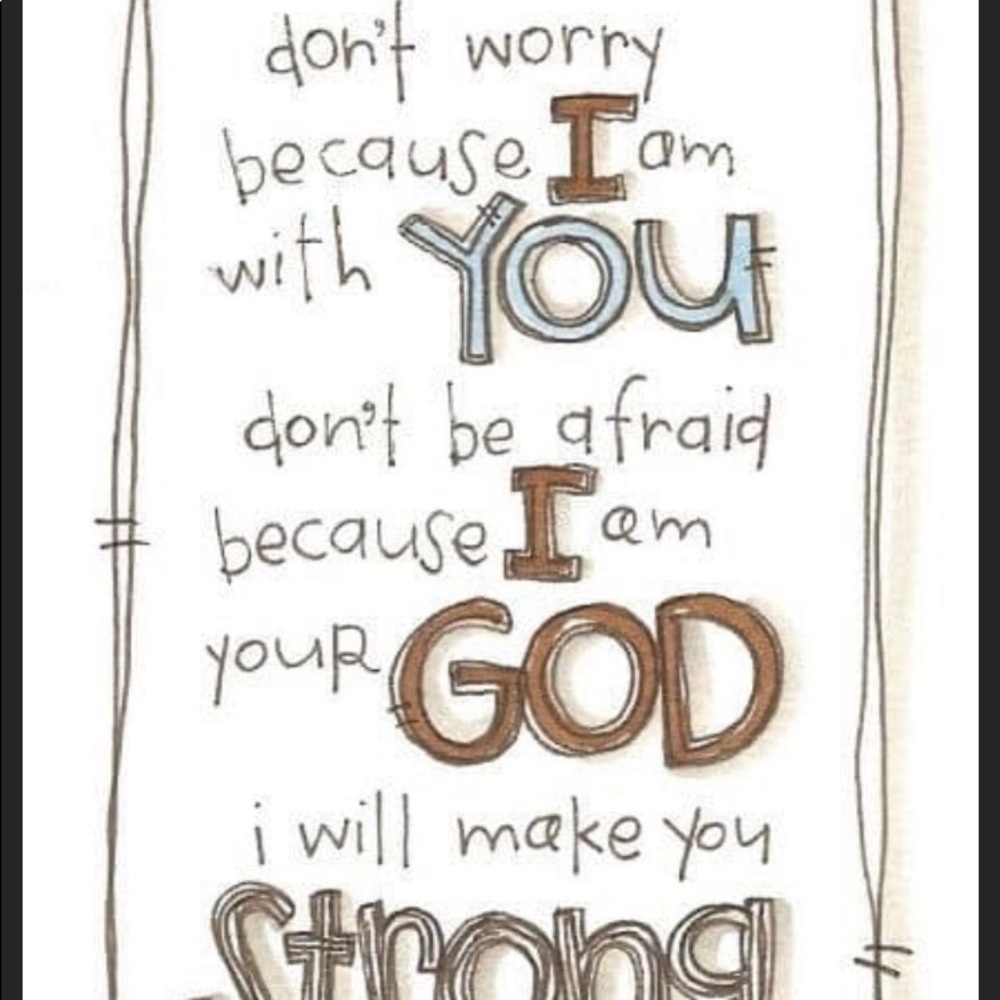 don't worry
because I am
with YOU
don't be afraid
because I am
youR GOD
i will make you
Strong